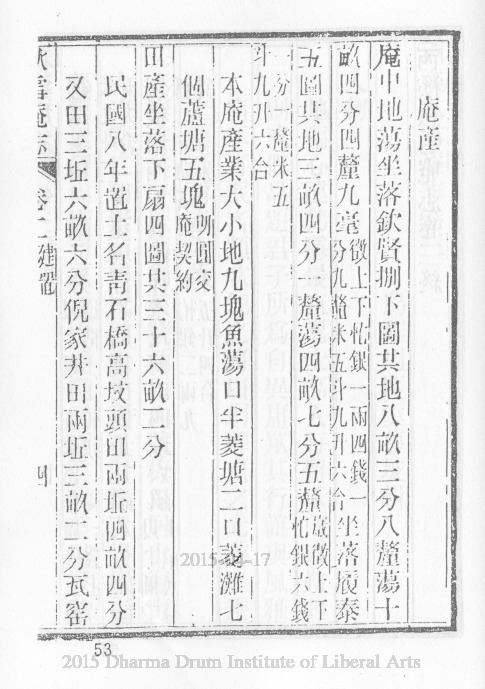 庵產
庵中地蕩坐落欽賢捌下圖共地八畝三分八釐蕩十
畝四分四釐九毫徵上下忙銀一兩四錢一分九釐米五斗九升六合坐落履泰
五圖其地三畝四分一釐蕩四畝七分五釐歲徵上下忙銀六錢
一分一釐米五
斗九升六合
本庵產業大小地九塊魚蕩口半菱塘二口菱灘七
個蘆塘五塊明圓交庵契約
田產坐落下扇四圖其三十六畝二分
民國八年置土名靑石橋高坟頭田兩坵四畝四分
又田三坵六畝六分倪家井田兩坵三畝二分瓦窰
秋雪庵志 卷二 建置 四
53
2015-04-17
2015 Dharma Drum Institute of Liberal Arts